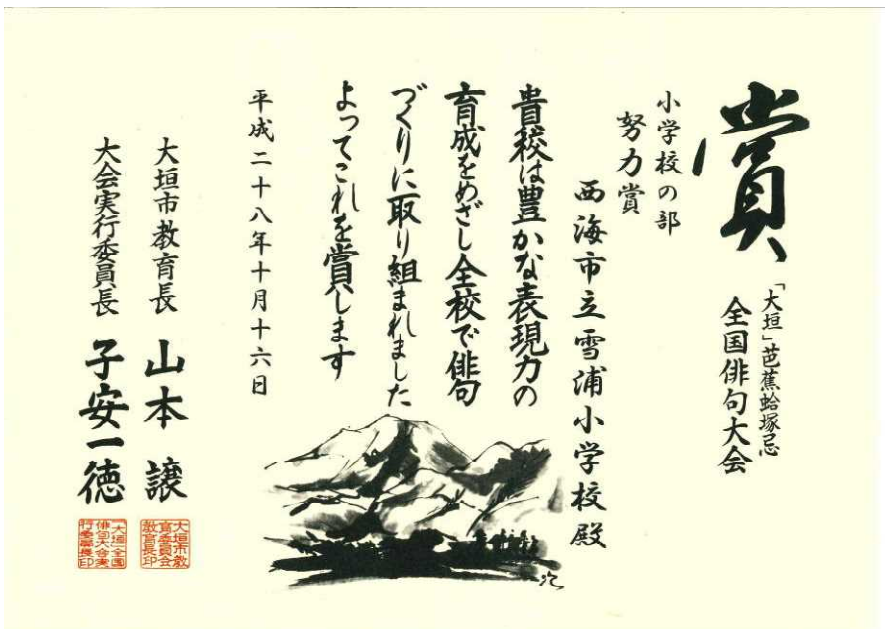 賞
「大垣」芭蕉蛤塚忌
全国俳句大会
小学校の部
努力賞
西海市立雪浦小学校殿
貴校は豊かな表現力の
育成をめざし全校で俳句
づくりに取り組まれました
よってこれを賞します
平成二十八年十月十六日
大垣市教育長 山本 譲
大会実行委員長 子安一徳
大垣市教
育委員会
教育長印